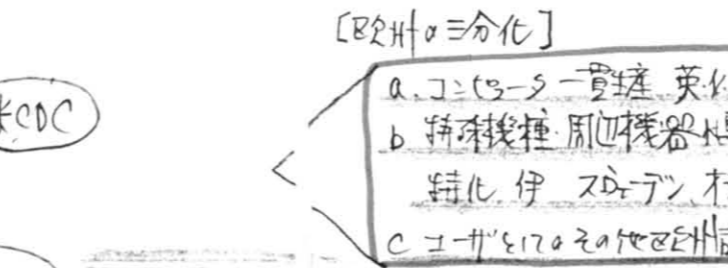 [欧州の三分化]
米CDC
a. コンピュータ一貫生産 英仏
b 特殊機種・周辺機器に
特化 伊 スウェーデン オ
c ユーザとしてのその他欧州